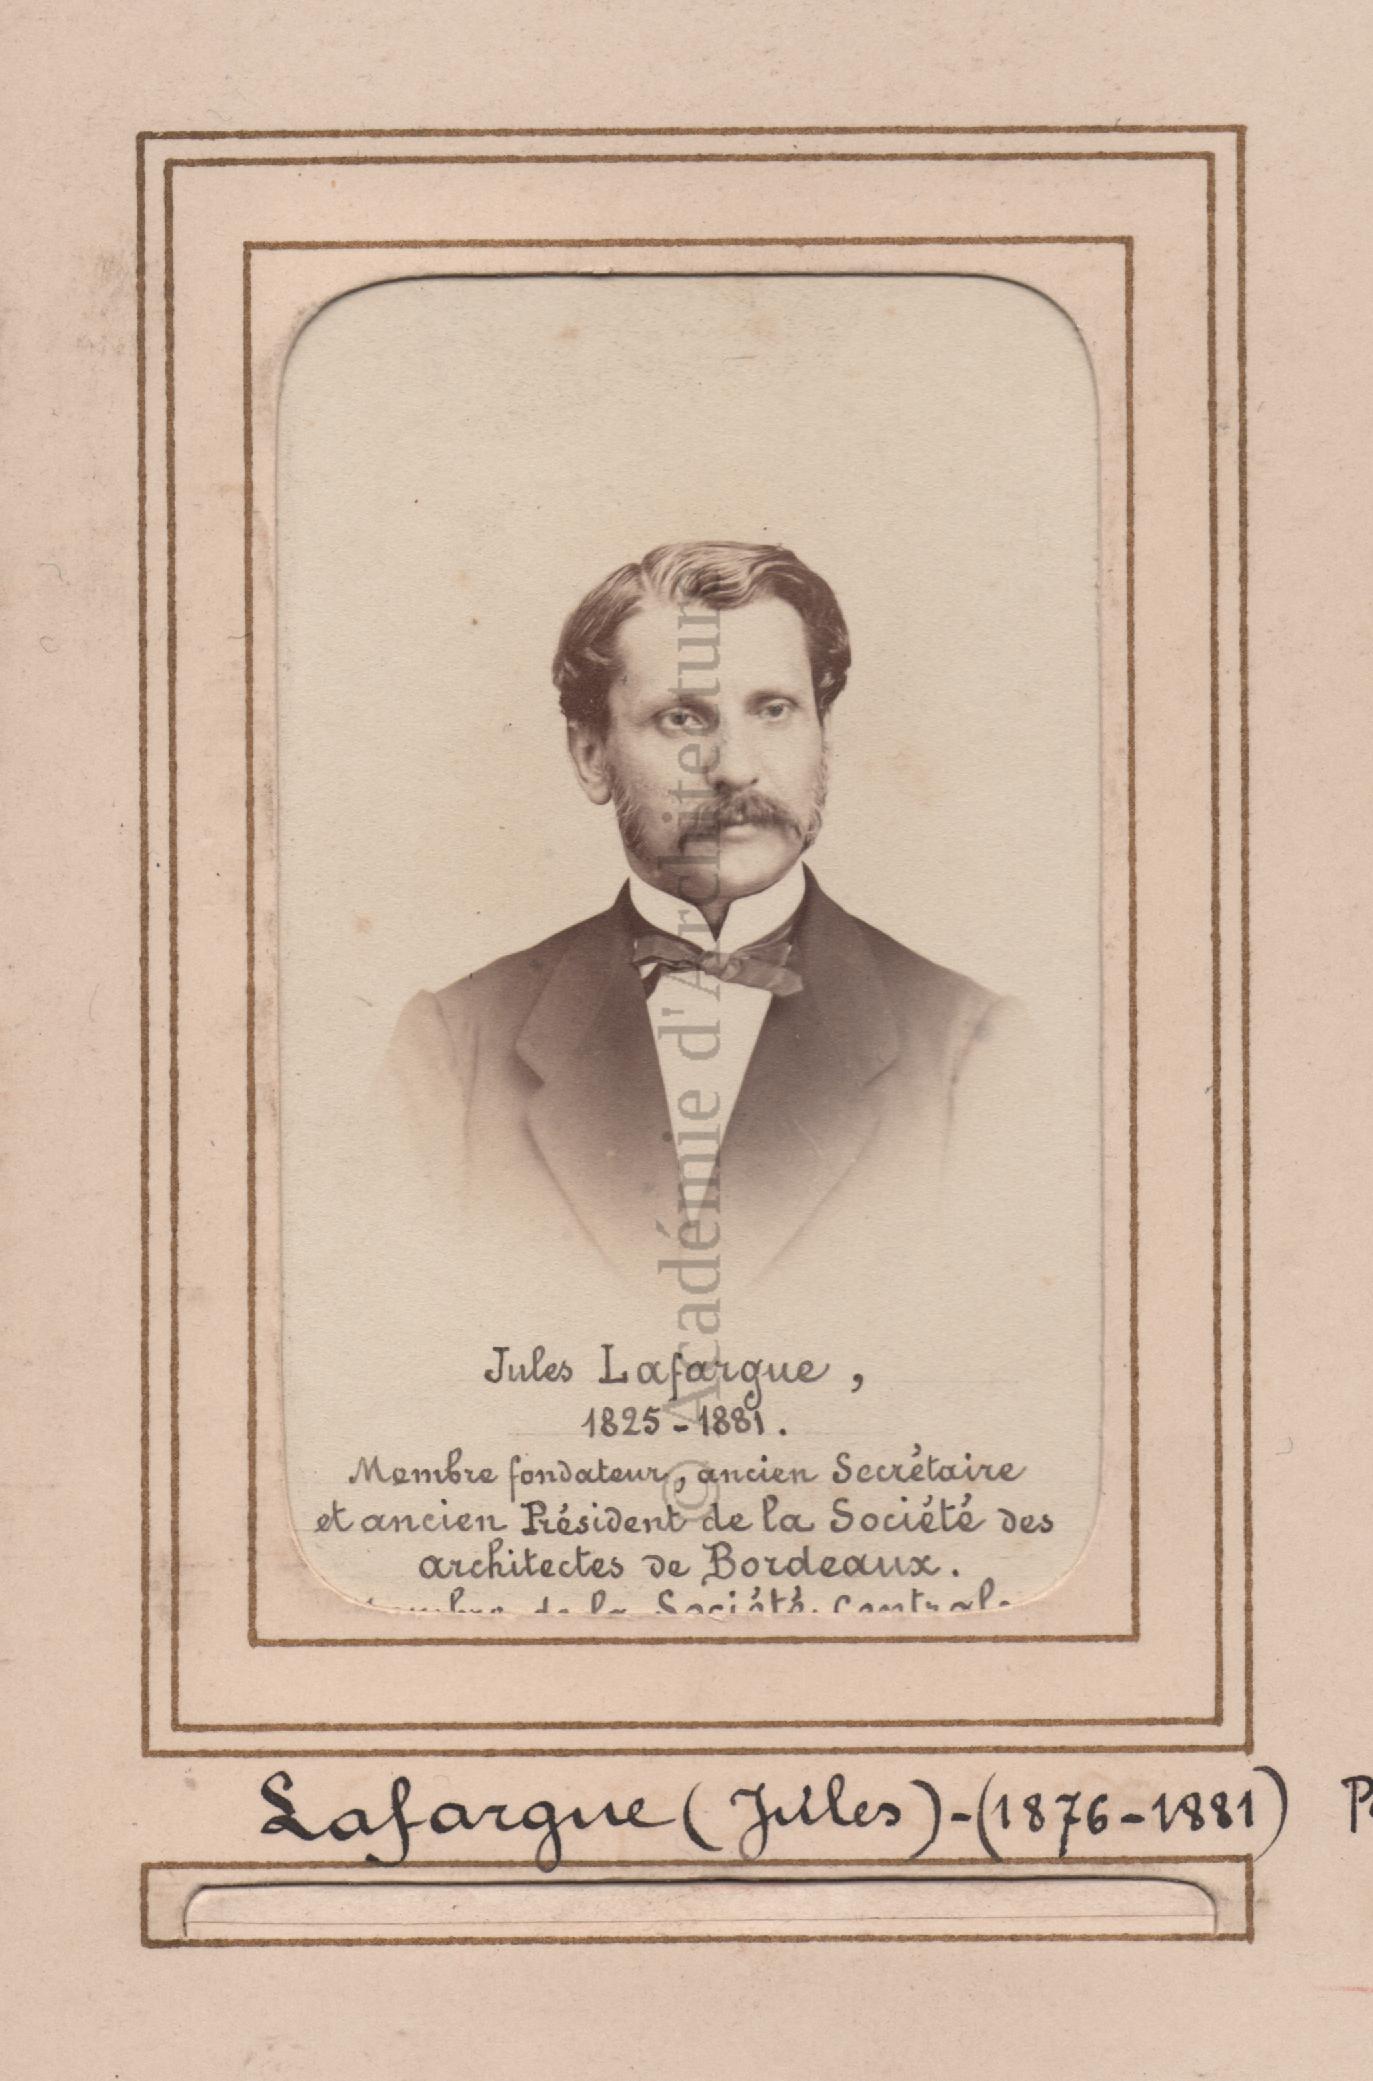 © Académie d'Architecture
Jules Lafargue,
1825-1881.
Membre fondateur, ancien Secrétaire
et ancien Président de la Société des
architectes de Bordeaux.
membre de la Société Centrale
Lafargue (Jules)-(1876-1881)